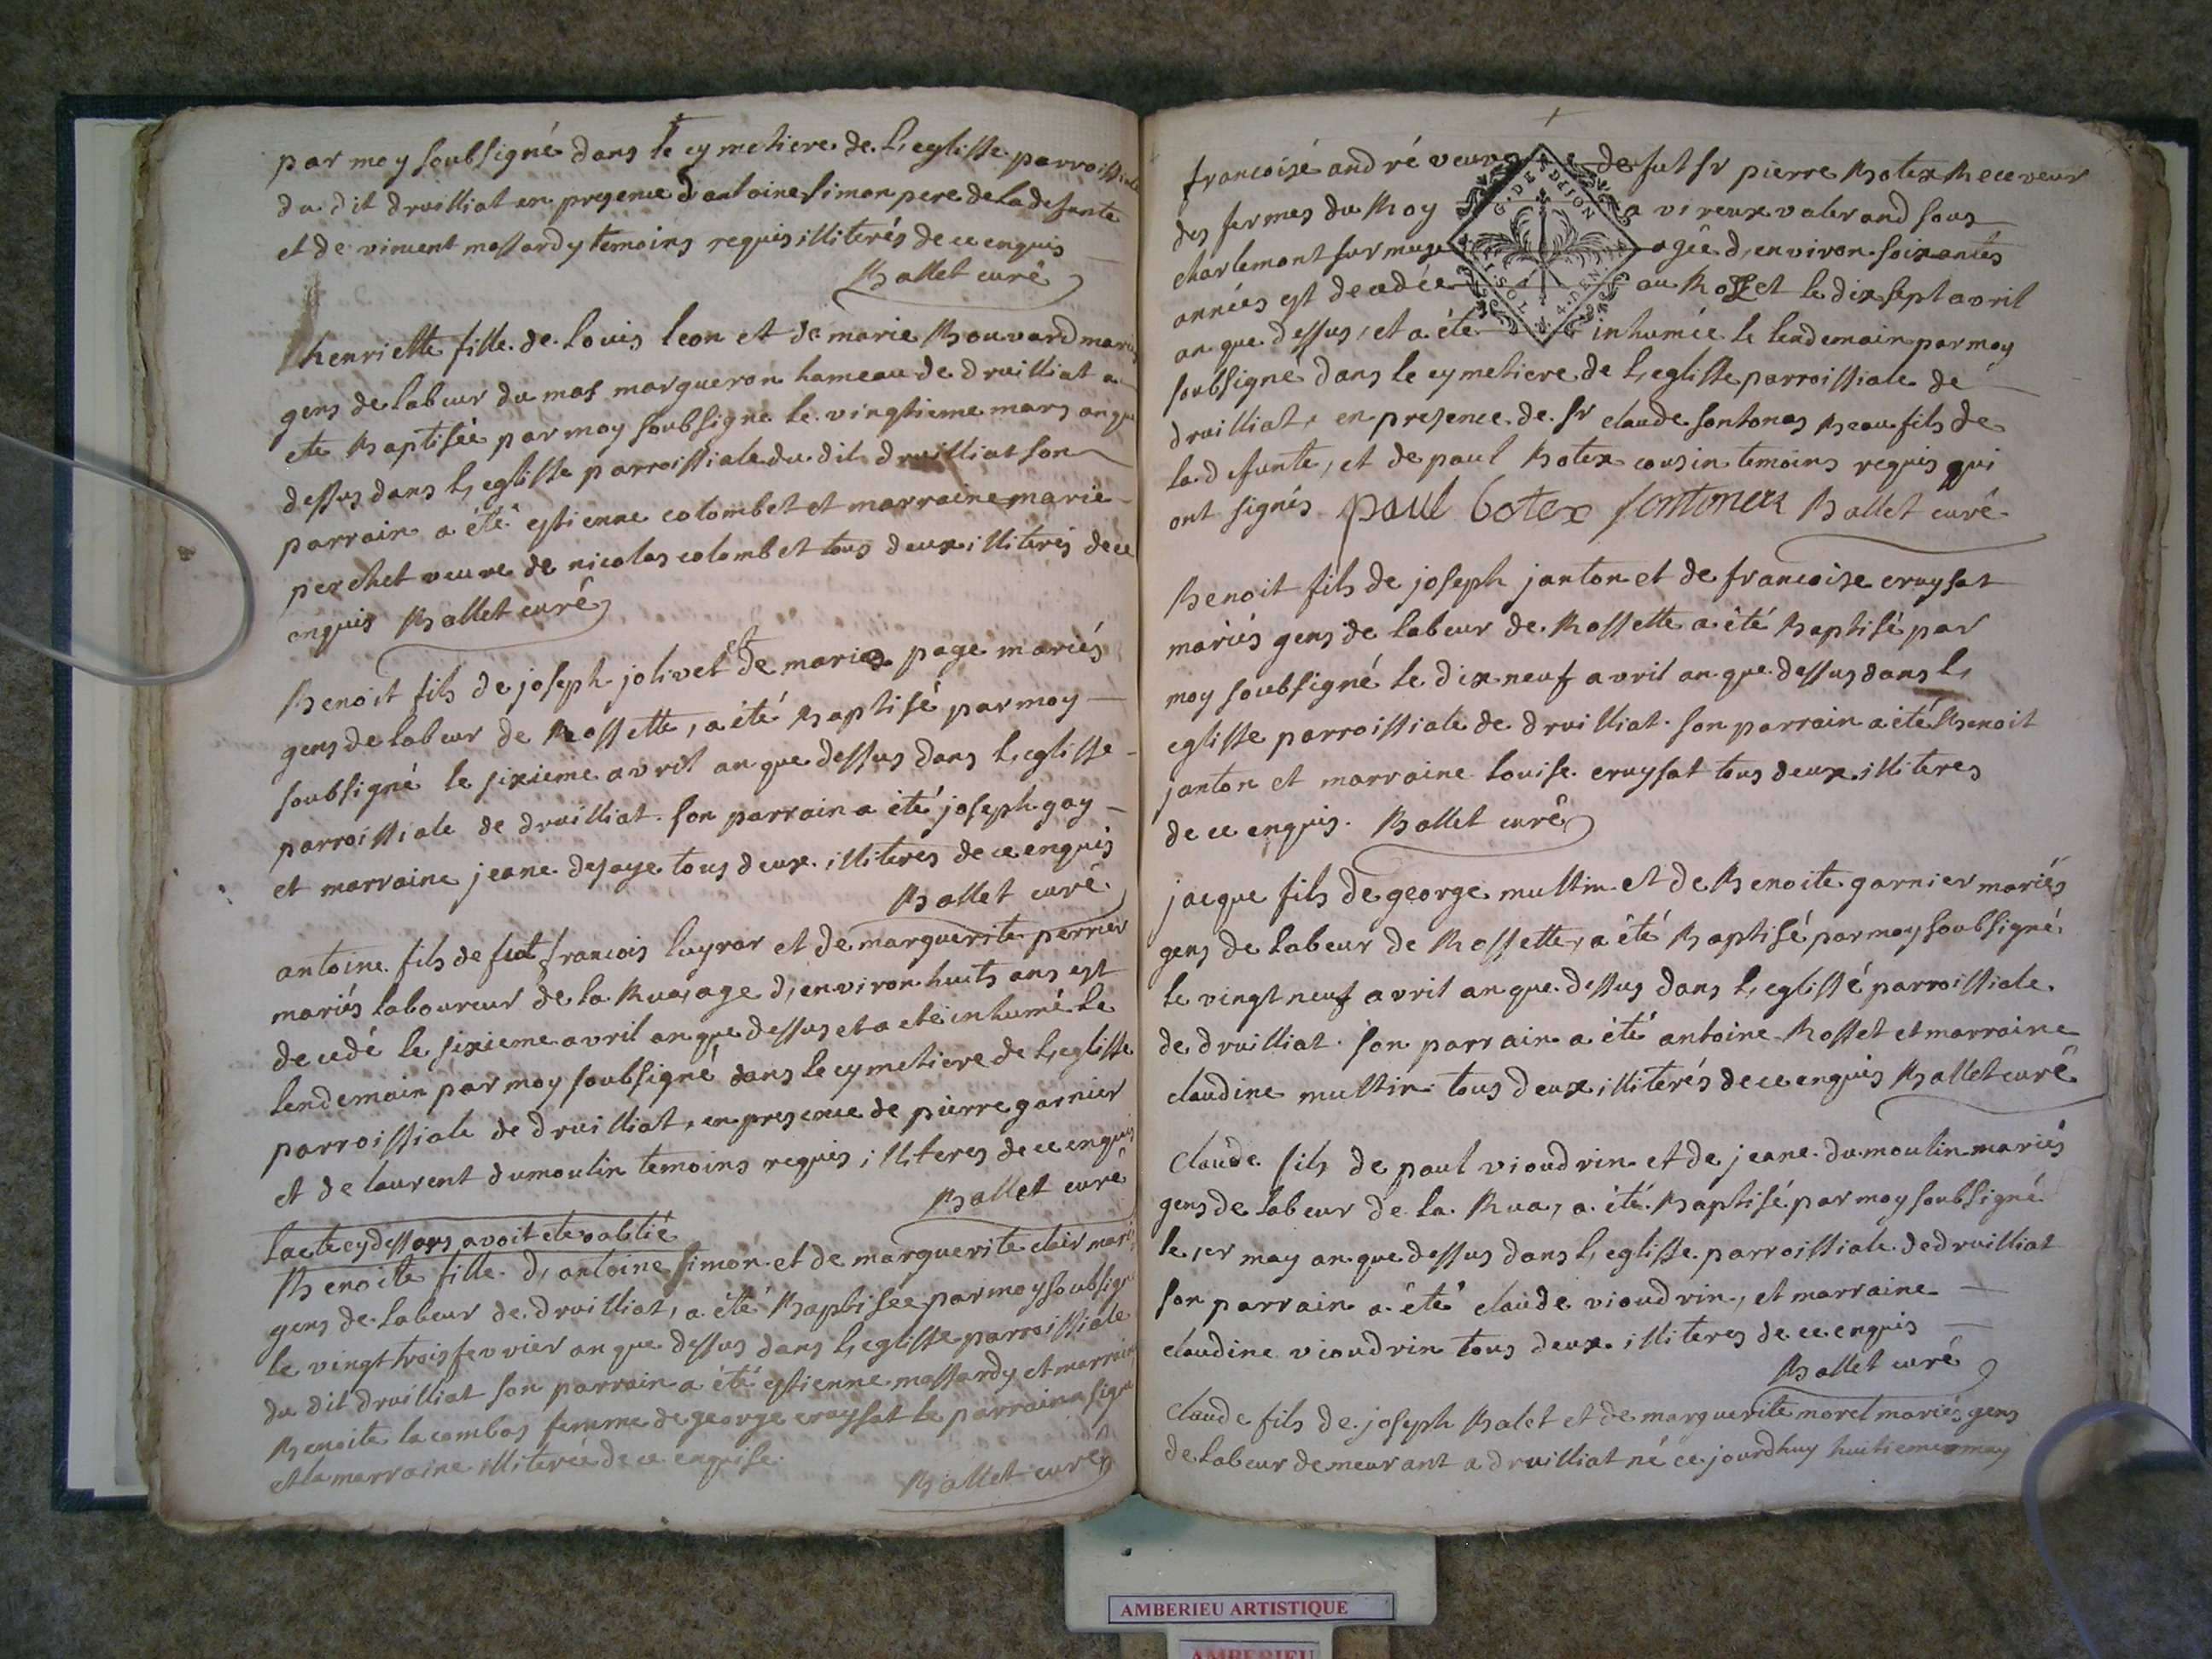 par moy soubsigné dans le cymetiere de l,eglisse parroissiale
du dit druilliat en presence d'antoine simon pere de la defunte
et de vincent massardy temoins requis illiterés de ce enquis
Ballet curé
henriette fille de louis leon et de marie Bouvard mariés
gens de labeur du mas margueron hameau de druilliat a
ete Baptisée par moy soubsigné le vingtieme mars an que
dessus dans l,eglisse parroissiale du dit druilliat son
parrain a été estienne colombet et marraine marie
perchet veuve de nicolas colombet tous deux illiterés de ce
enquis Ballet curé
Benoit fils de joseph jolivet et de marie page mariés
gens de labeur de Rossette, a été Baptisé par moy
soubsigné le sixieme avril an que dessus dans l,eglisse
parroissiale de druilliat. son parrain a été joseph gay
et marraine jeane desaye tous deux illiteres de ce enquis
Ballet curé
antoine fils de fut francois luyrar et de marguerite perrier
mariés laboureur de la Rua, age d,environ huits ans est
decedé le sixieme avril an que dessus et a eté inhumé le
lendemain par moy soubsigné dans le cymetiere de l,eglisse
parroissiale de druilliat, en presence de pierre garnier
et de laurent dumoulin temoins requis illiteres de ce enquis
Ballet curé
lacte cy dessous avoit ete oablié
Benoite fille d,antoine simon et de marguerite clair mariés
gens de labeur de druilliat, a été Baptisée par moy soubsigné
le vingt trois fevrier an que dessus dans l,eglisse parroissiale
du dit druilliat son parrain a été estienne massardy et marraine
Benoite lacombas femme de george cruysat le parrain a signé
et la marraine illiterée de ce enquise
Ballet curé
francoise andré veuve de fut sr pierre Botex Receveur
des fermes du Roy a vireux valerand sous
charlemont sur muze agée d,environ soixantes
années est decedée au Rosset le dix sept avril
an que dessus, et a éte inhumée le lendemain par moy
soubsigne dans le cymetiere de l,eglisse parroissiale de
druilliat, en presence de sr claude fontonas Beau fils de
la defunte, et de paul Botex cousin temoins requis qui
ont signés paul botex Ballet curé
G. DE DIJON
I. SOL. 4. DEN.
Benoit fils de joseph janton et de francoise cruysat
mariés gens de labeur de Rossette a été Baptisé par
moy soubsigné le dix neuf avril an que dessus dans l,
eglisse parroissiale de druilliat. son parrain a été Benoit
janton et marraine louise cruysat tous deux illiteres
de ce enquis. Ballet curé
jacque fils de george multin et de Benoite garnier mariés
gens de labeur de Rossette, a été Baptisé par moy soubsigné
le vingt neuf avril an que dessus dans l,eglisse parroissiale
de druilliat. son parrain a été antoine Rosset et marraine
claudine multin tous deux illiterés de ce enquis Ballet curé
Claude fils de paul vioudrin et de jeane dumoulin mariés
gens de labeur de la Rua, a été Baptisé par moy soubsigné
le 1er may an que dessus dans l,eglisse parroissiale de druilliat
son parrain a été claude vioudrin, et marraine
claudine vioudrin tous deux illiteres de ce enquis
Ballet curé
claude fils de joseph Balet et de marguerite morel mariés gens
de labeur demeurant a druilliat né ce jourdhuy huitieme may
AMBERIEU ARTISTIQUE
AMBERIEU